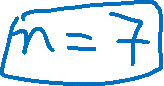 n = 7